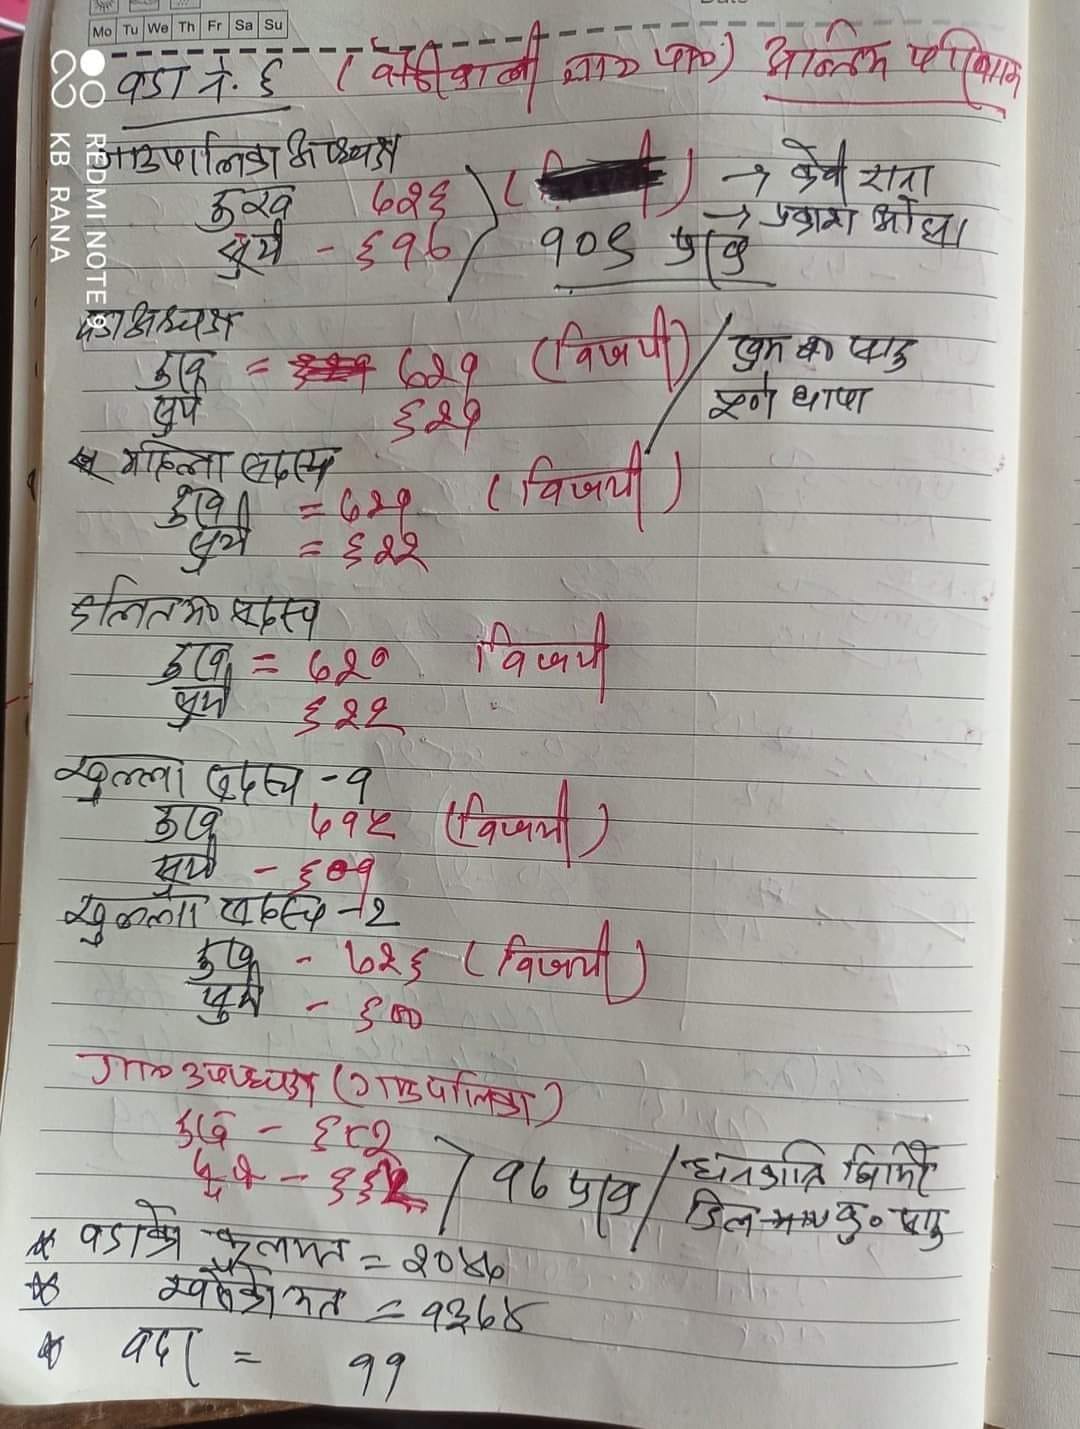 Mo Tu We Th Fr Sa Su
वडा नं. ६ ( ) अन्तिम परिणाम
गाउपालिका अध्यक्ष
रुख ७२६ → देवी राना
सूर्य - ६१७ १०९ फरक → प्रकाश
वडा अध्यक्ष
रुख = ७२१ (विजयी)
सूर्य ६२१ थापा
महिला सदस्य
रुख = ७२१ (विजयी)
सूर्य = ६२२
दलित म० सदस्य
रुख = ७२० विजयी
सूर्य ६२२
खुल्ला सदस्य - १
रुख ७१५ (विजयी)
सूर्य - ६०१
खुल्ला सदस्य - २
रुख - ७२६ (विजयी)
सूर्य - ६००
उपाध्यक्ष (गाउपालिका)
रुख -
१७ फरक
* वडाको कुलमत = २०४७
* खसेको मत = १३७४
* बदर = ११
REDMI NOTE 9
KB RANA